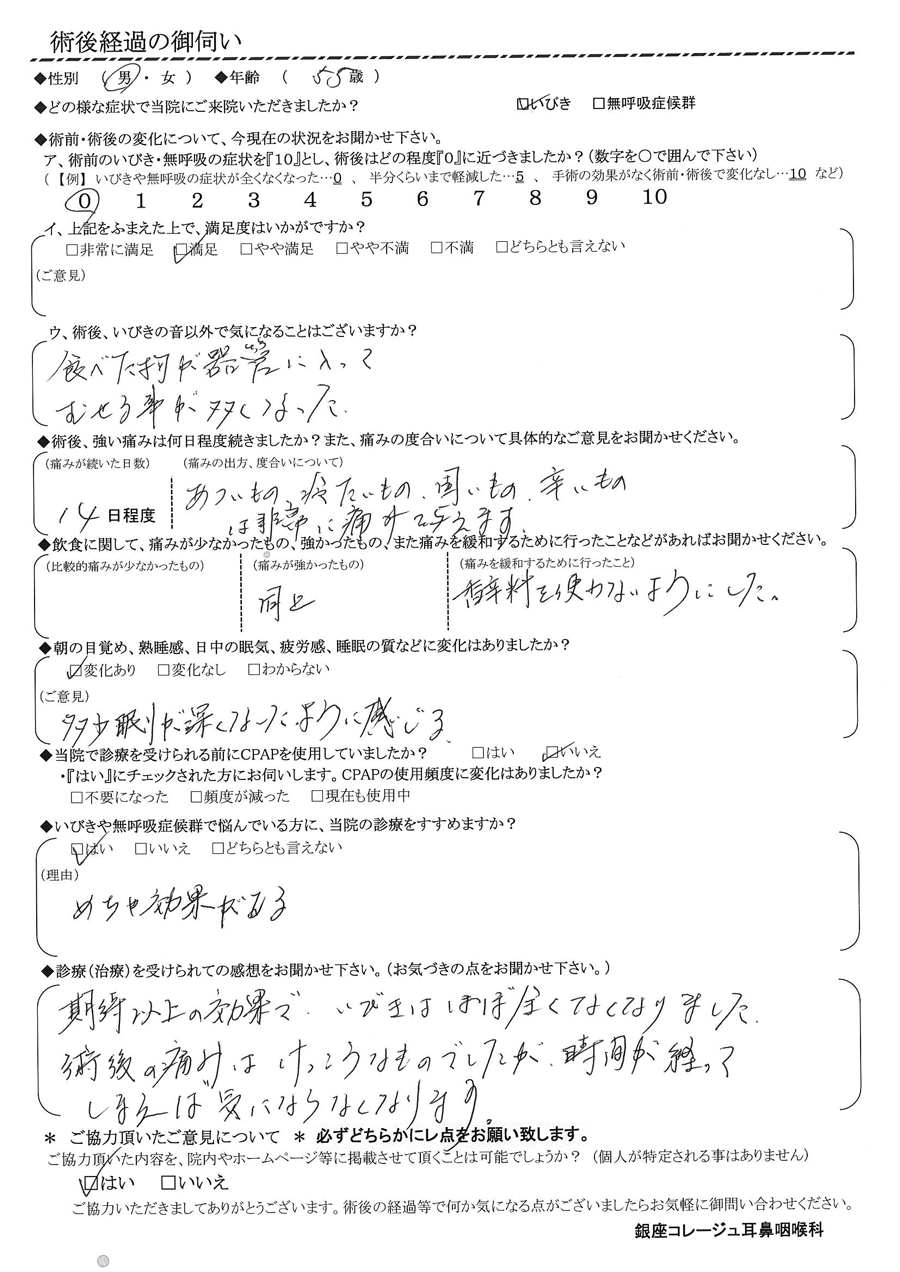 術後経過の御伺い
◆性別 ( 男 ・ 女 ) ◆年齢 ( 55歳 )
◆どの様な症状で当院にご来院いただきましたか? ☑いびき □無呼吸症候群
◆術前・術後の変化について、今現在の状況をお聞かせ下さい。
ア、術前のいびき・無呼吸の症状を『10』とし、術後はどの程度『0』に近づきましたか?(数字を〇で囲んで下さい)
(【例】 いびきや無呼吸の症状が全くなくなった…0 、 半分くらいまで軽減した…5 、 手術の効果がなく術前・術後で変化なし…10 など)
0 1 2 3 4 5 6 7 8 9 10
イ、上記をふまえた上で、満足度はいかがですか?
□非常に満足 ☑満足 □やや満足 □やや不満 □不満 □どちらとも言えない
(ご意見)
ウ、術後、いびきの音以外で気になることはございますか?
食べた物が器官に入って
むせる事が多くなった.
◆術後、強い痛みは何日程度続きましたか?また、痛みの度合いについて具体的なご意見をお聞かせください。
(痛みが続いた日数) (痛みの出方、度合いについて)
14 日程度 あついもの、冷たいもの、固いもの、辛いもの
は非常に痛みて
◆飲食に関して、痛みが少なかったもの、強かったもの、また痛みを緩和するために行ったことなどがあればお聞かせください。
(比較的痛みが少なかったもの) (痛みが強かったもの) (痛みを緩和するために行ったこと)
同上 香辛料を使わないようにした。
◆朝の目覚め、熟睡感、日中の眠気、疲労感、睡眠の質などに変化はありましたか?
☑変化あり □変化なし □わからない
(ご意見)
多少眠りが深くなったように感じる.
◆当院で診療を受けられる前にCPAPを使用していましたか? □はい ☑いいえ
・『はい』にチェックされた方にお伺いします。CPAPの使用頻度に変化はありましたか?
□不要になった □頻度が減った □現在も使用中
◆いびきや無呼吸症候群で悩んでいる方に、当院の診療をすすめますか?
☑はい □いいえ □どちらとも言えない
(理由)
めちゃ効果がある
◆診療(治療)を受けられての感想をお聞かせ下さい。(お気づきの点をお聞かせ下さい。)
期待以上の効果で、いびきはほぼ全くなくなりました.
術後の痛みはけっこうなものでしたが、時間が経って
しまえば気にならなくなります。
* ご協力頂いたご意見について * 必ずどちらかにレ点をお願い致します。
ご協力頂いた内容を、院内やホームページ等に掲載させて頂くことは可能でしょうか? (個人が特定される事はありません)
☑はい □いいえ
ご協力いただきましてありがとうございます。術後の経過等で何か気になる点がございましたらお気軽に御問い合わせください。
銀座コレージュ耳鼻咽喉科